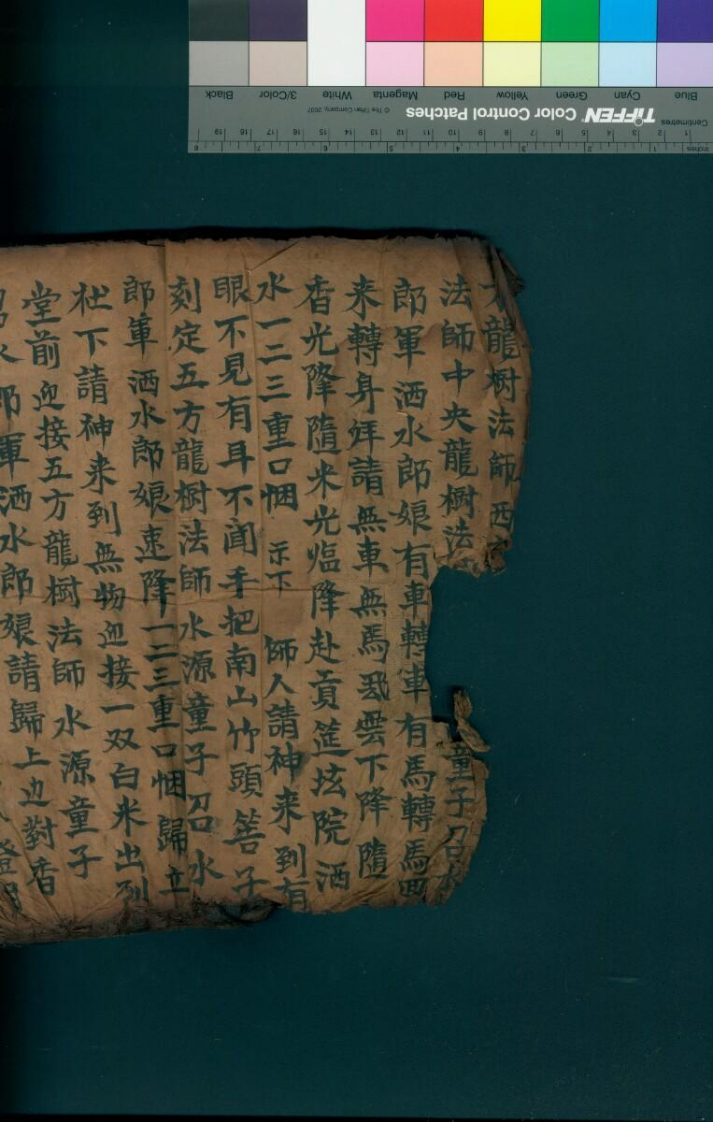 龍樹法師西
法師中央龍樹法
童子召水
郎軍洒水郎娘有車轉車有馬轉馬
来轉身拜請無車無馬雲下降隨
香光降隨米光臨降赴貢筵坛院洒
水一二三重口悃 示下 師人請神来到有
眼不見有耳不闻手把南山竹頭筶子
刻定五方龍樹法師水源童子召水
郎軍洒水郎娘速降一二三重口悃歸立
牡下請神来到無物迎接一双白米出列
堂前迎接五方龍樹法師水源童子
召水郎軍洒水郎娘請歸上边對香
Black
3/Color
White
Magenta
Red
Yellow
Green
Cyan
Blue
© The Tiffen Company, 2007
TIFFEN Color Control Patches
Centimetres
1 2 3 4 5 6 7 8 9 10 11 12 13 14 15 16 17 18 19
Inches
1 2 3 4 5 6 7 8